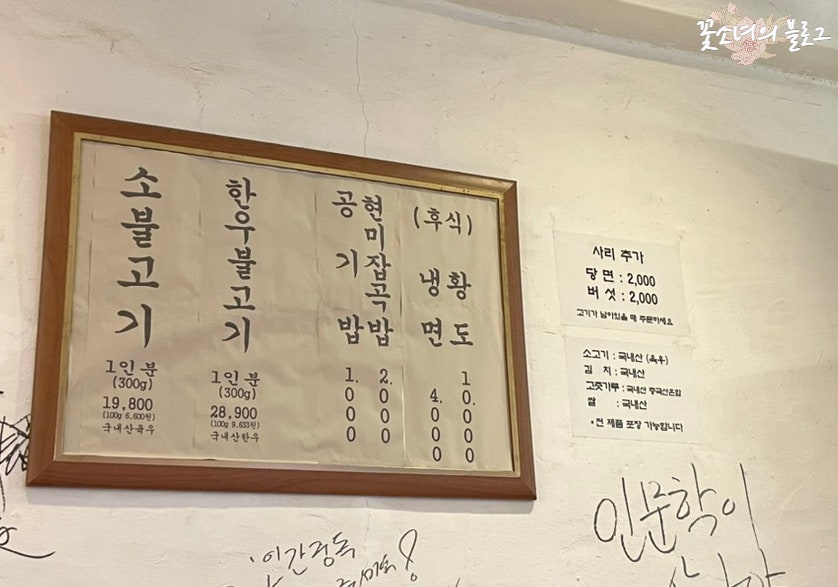 꽃소녀의 블로그
소불고기
1인분
(300g)
19,800
(100g 6,600원)
국내산육우
한우불고기
1인분
(300g)
28,900
(100g 9,633원)
국내산한우
공기밥
1.000
현미잡곡밥
2.000
(후식)
냉면
4.000
황도
10.000
사리 추가
당면 : 2,000
버섯 : 2,000
고기가 남아있을 때 주문하세요
소고기 : 국내산 (육우)
김 치 : 국내산
고춧가루 : 국내산 중국산혼합
쌀 : 국내산
•전 제품 포장 가능합니다
인문학이